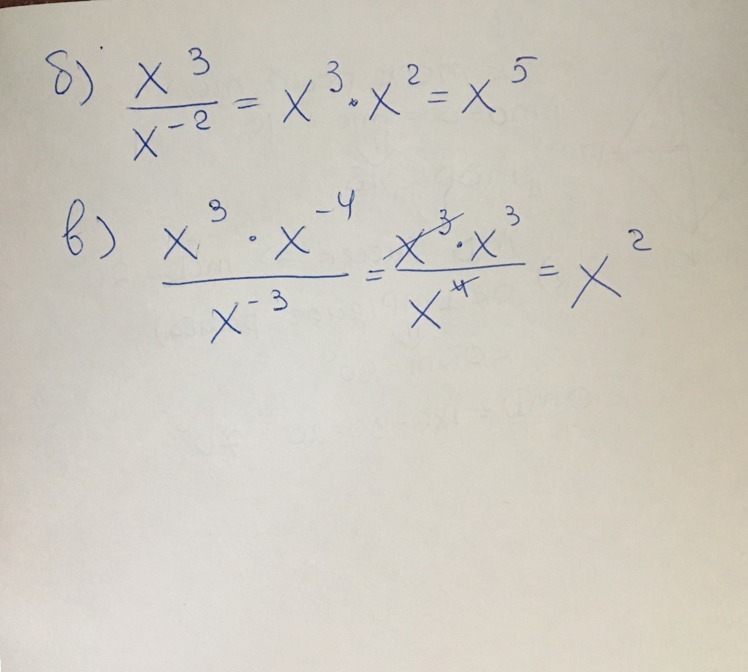 б) x³/x⁻² = x³·x² = x⁵
в) x³·x⁻⁴/x⁻³ = x³·x³/x⁴ = x²